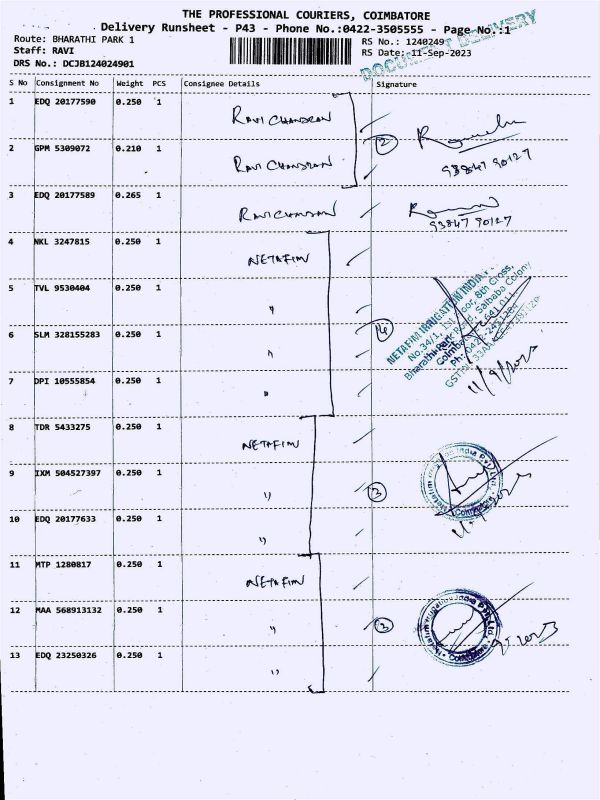 THE PROFESSIONAL COURIERS, COIMBATORE
Delivery Runsheet - P43 - Phone No.:0422-3505555 - Page No.:1
Route: BHARATHI PARK 1
RS No.: 1240249
Staff: RAVI
RS Date: 11-Sep-2023
DRS No.: DCJB124024901
DOCUMENT DELIVERY
S No Consignment No Weight PCS Consignee Details Signature
1 EDQ 20177590 0.250 1 RAVICHANDRAN
2 GPM 5309072 0.210 1 RAVICHANDRAN 2 93847 90127
3 EDQ 20177589 0.265 1 RAVICHANDRAN 93847 90127
4 NKL 3247815 0.250 1 NETAFIM
5 TVL 9530404 0.250 1 "
6 SLM 328155283 0.250 1 "
7 DPI 10555854 0.250 1 "
NETAFIM IRRIGATION INDIA
No.34/1, 1st Floor, 8th Cross,
Bharathi Park Road, Saibaba Colony
Coimbatore - 641 011
11/9/2023
8 TDR 5433275 0.250 1 NETAFIM
9 IXM 504527397 0.250 1 " 3
10 EDQ 20177633 0.250 1 "
Netafim Irrigation India Pvt. Ltd.
Coimbatore
11 MTP 1280817 0.250 1 NETAFIM
12 MAA 568913132 0.250 1 " 3
13 EDQ 23250326 0.250 1 "
Netafim Irrigation India Pvt. Ltd.
Coimbatore